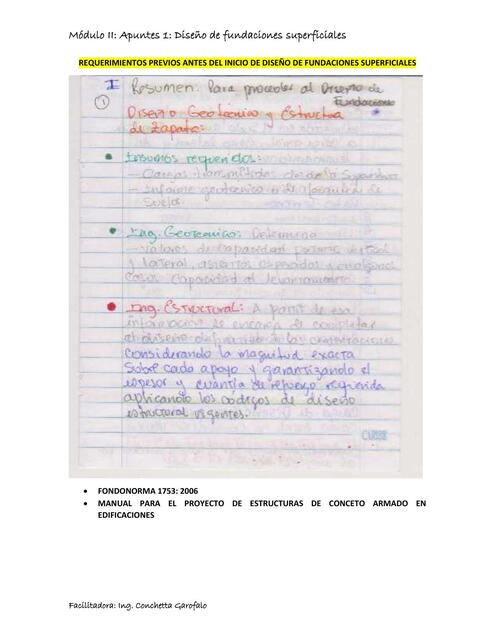 Módulo II: Apuntes 1: Diseño de fundaciones superficiales
REQUERIMIENTOS PREVIOS ANTES DEL INICIO DE DISEÑO DE FUNDACIONES SUPERFICIALES
I Resumen: Para proceder al Diseño de
Fundaciones
1
Diseño Geotécnico y Estructural
de Zapatas
• Insumos requeridos:
- Cargas transmitidas desde la Superestr
- Informe geotécnico o de
Suelos
• Ing. Geotécnico: Determina
- Valores de capacidad portante vertical
y lateral, asientos esperados y en algunos
casos capacidad al levantamiento
• Ing. Estructural: A partir de esa
información se encarga de completar
el diseño definitivo de las
considerando la magnitud exacta
sobre cada apoyo y garantizando el
espesor y cuantía de refuerzo requerida
aplicando los códigos de diseño
estructural vigentes.
CARIBE
• FONDONORMA 1753: 2006
• MANUAL PARA EL PROYECTO DE ESTRUCTURAS DE CONCETO ARMADO EN
EDIFICACIONES
Facilitadora: Ing. Conchetta Garofalo